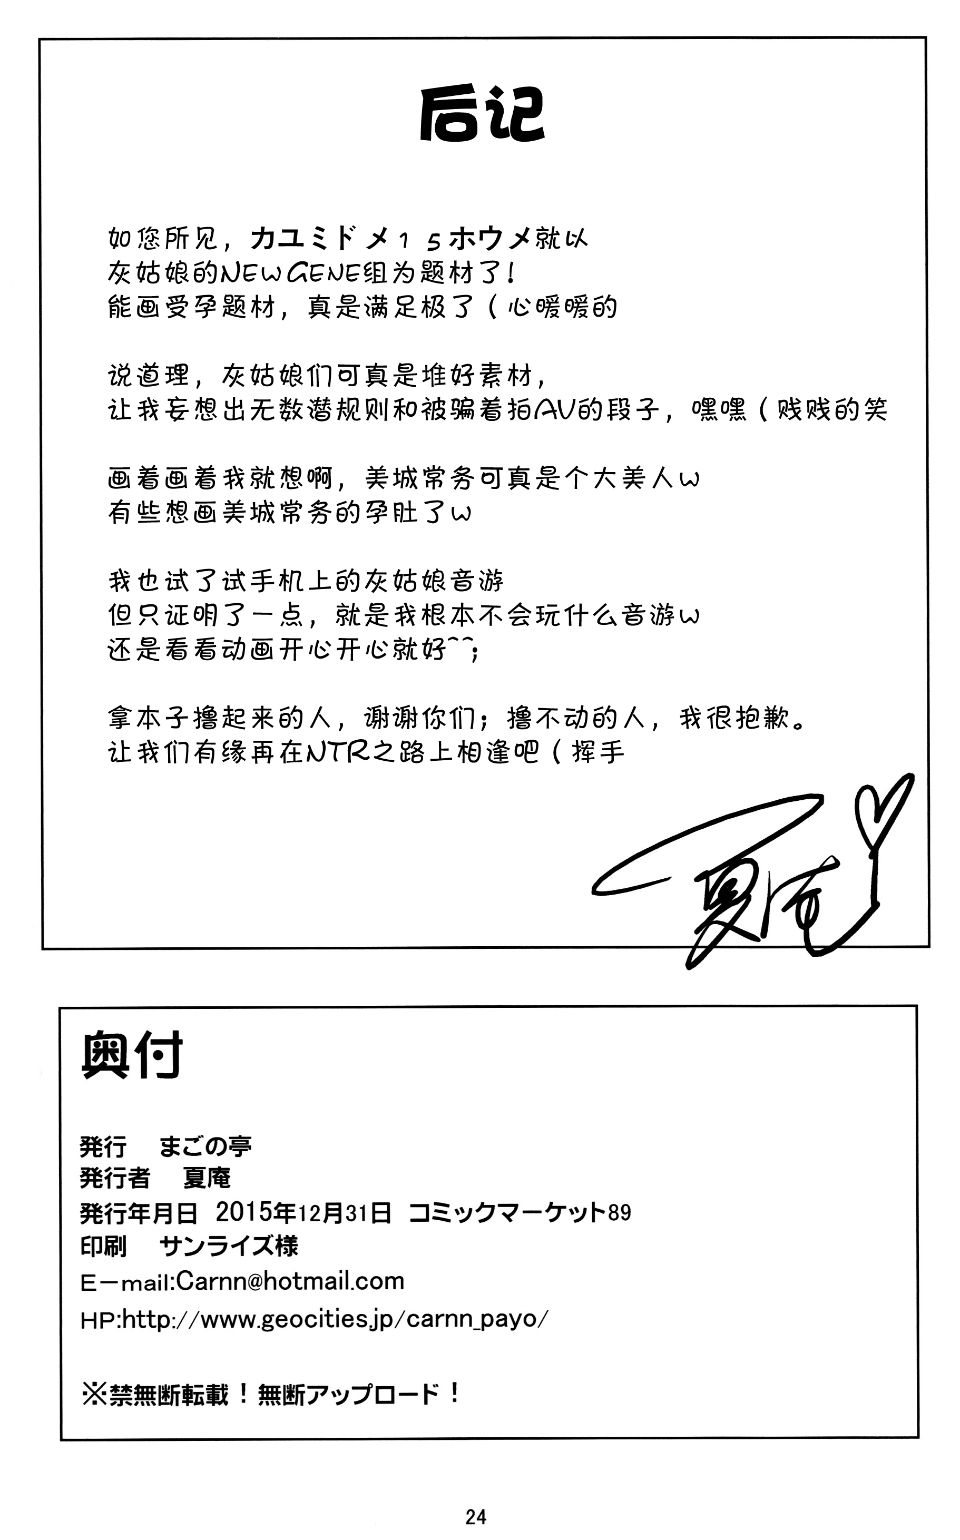 后记
如您所见，カユミドメ15ホウメ就以
灰姑娘的NEW GENE组为题材了！
能画受孕题材，真是满足极了（心暖暖的
说道理，灰姑娘们可真是堆好素材，
让我妄想出无数潜规则和被骗着拍AV的段子，嘿嘿（贱贱的笑
画着画着我就想啊，美城常务可真是个大美人w
有些想画美城常务的孕肚了w
我也试了试手机上的灰姑娘音游
但只证明了一点，就是我根本不会玩什么音游w
还是看看动画开心开心就好^^；
拿本子撸起来的人，谢谢你们；撸不动的人，我很抱歉。
让我们有缘再在NTR之路上相逢吧（挥手
夏庵
奥付
発行　まごの亭
発行者　夏庵
発行年月日　2015年12月31日　コミックマーケット89
印刷　サンライズ様
E－mail:Carnn@hotmail.com
HP:http://www.geocities.jp/carnn_payo/
※禁無断転載！無断アップロード！
24